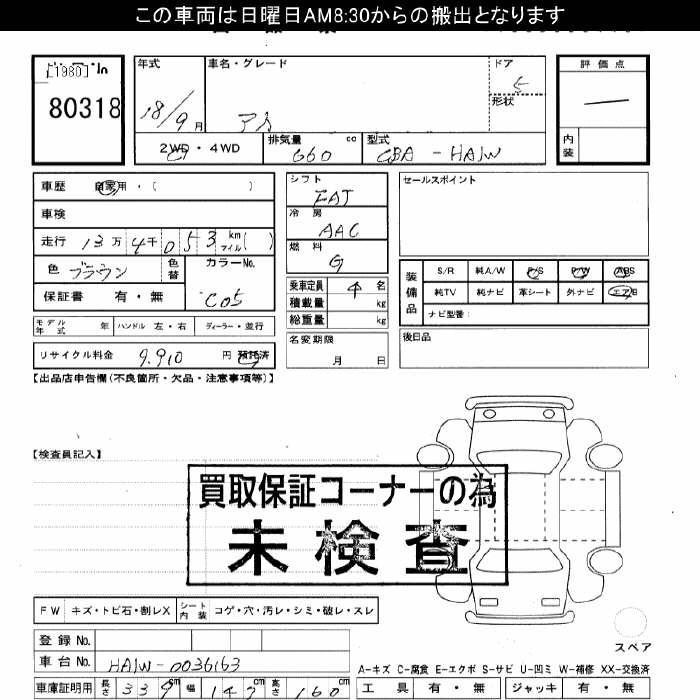 この車両は日曜日AM8:30からの搬出となります
[1980]
80318
年式
18/9月
車名・グレード
ドア
5
形状
評価点
—
内装
2WD・4WD
排気量
660 cc
型式
CBA - HA1W
車歴 自家用・( )
車検
走行 13万4千053 km マイル ( )
色 ブラウン
色替
カラーNo.
C05
保証書 有・無
モデル年式 年
ハンドル 左・右
ディーラー・並行
リサイクル料金 9.910 円 預託済
シフト
FAT
冷房
AAC
燃料
G
乗車定員 4 名
積載量 kg
総重量 kg
名変期限
月 日
セールスポイント
装備品
S/R 純A/W P/S P/W ABS
純TV 純ナビ 革シート 外ナビ エアB
ナビ型番:
後日品
【出品店申告欄(不良箇所・欠品・注意事項等)】
【検査員記入】
買取保証コーナーの為
未検査
FW キズ・トビ石・割レX
シート内装 コゲ・穴・汚レ・シミ・破レ・スレ
登録No.
車台No. HA1W-0036163
車庫証明用 長さ 339cm 幅 147cm 高さ 160cm
スペア
A-キズ C-腐食 E-エクボ S-サビ U-凹ミ W-補修 XX-交換済
工具 有・無 ジャッキ 有・無